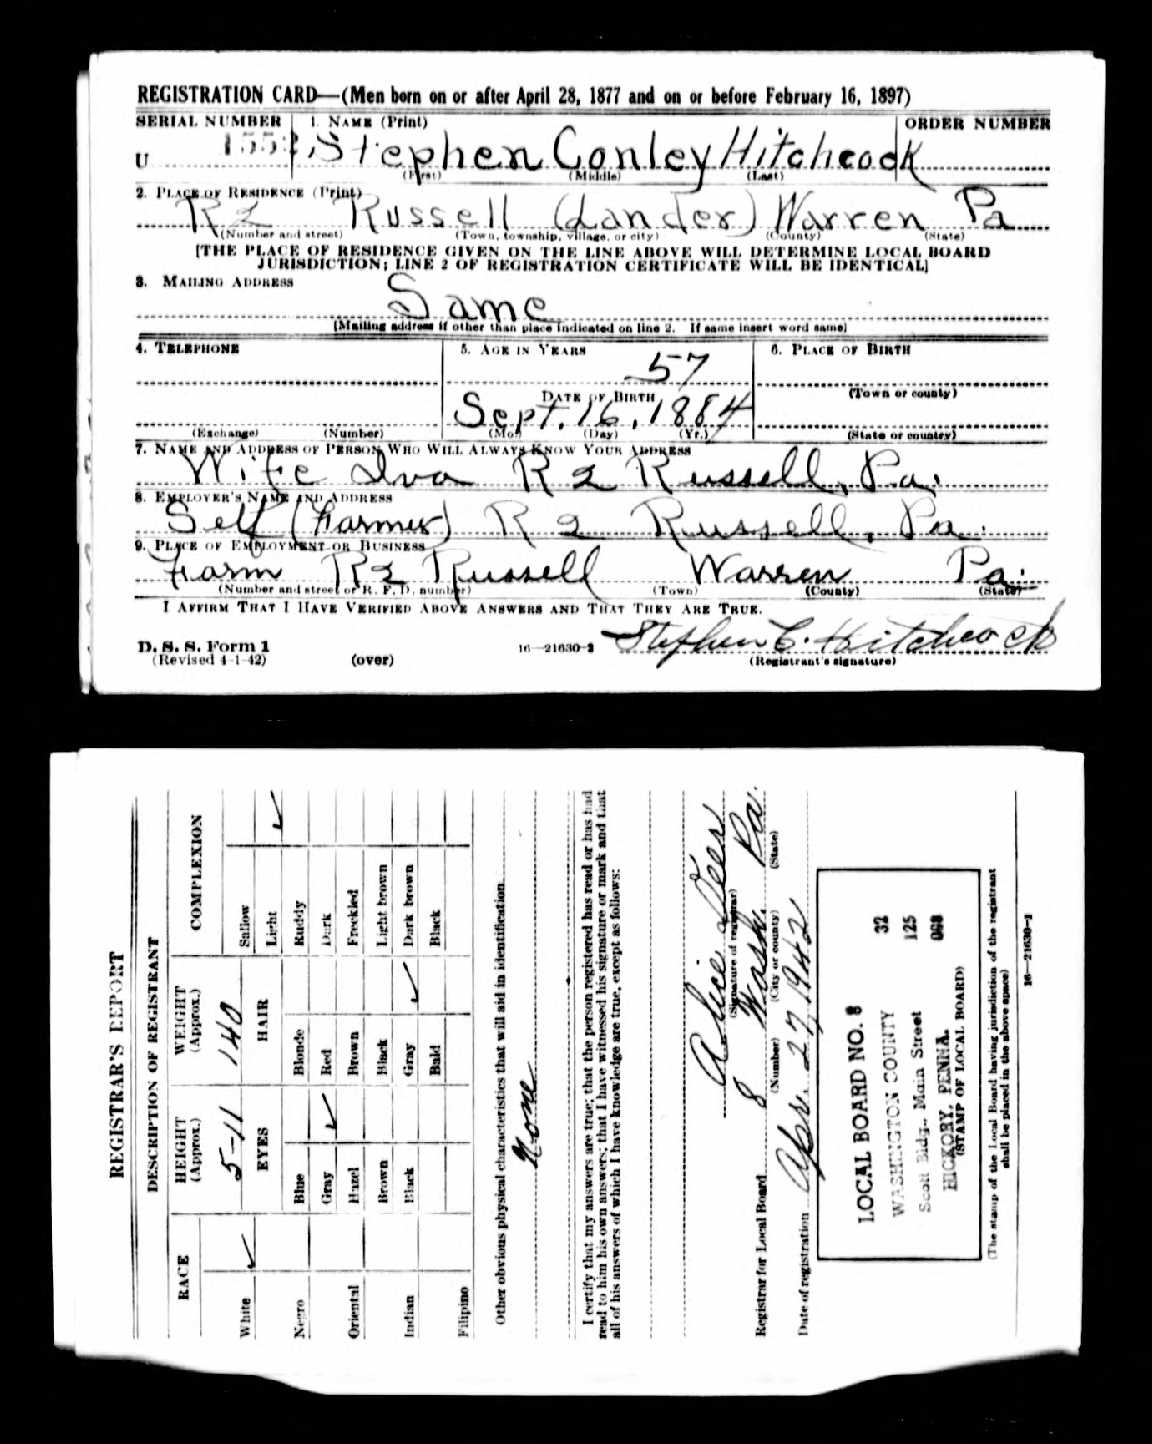 REGISTRATION CARD—(Men born on or after April 28, 1877 and on or before February 16, 1897)
SERIAL NUMBER 1. NAME (Print) ORDER NUMBER
U 155 Stephen Conley Hitchcock
(First) (Middle) (Last)
2. PLACE OF RESIDENCE (Print)
R2 Russell (Lander) Warren Pa
(Number and street) (Town, township, village, or city) (County) (State)
[THE PLACE OF RESIDENCE GIVEN ON THE LINE ABOVE WILL DETERMINE LOCAL BOARD
JURISDICTION; LINE 2 OF REGISTRATION CERTIFICATE WILL BE IDENTICAL]
3. MAILING ADDRESS
Same
[Mailing address if other than place indicated on line 2. If same insert word same]
4. TELEPHONE 5. AGE IN YEARS 6. PLACE OF BIRTH
57
DATE OF BIRTH (Town or county)
Sept. 16, 1884
(Exchange) (Number) (Mo.) (Day) (Yr.) (State or country)
7. NAME AND ADDRESS OF PERSON WHO WILL ALWAYS KNOW YOUR ADDRESS
Wife Iva R2 Russell, Pa.
8. EMPLOYER'S NAME AND ADDRESS
Self (Farmer) R2 Russell, Pa.
9. PLACE OF EMPLOYMENT OR BUSINESS
Farm R2 Russell Warren Pa.
(Number and street or R. F. D. number) (Town) (County) (State)
I AFFIRM THAT I HAVE VERIFIED ABOVE ANSWERS AND THAT THEY ARE TRUE.
Stephen C. Hitchcock
D. S. S. Form 1
(Revised 4-1-42) (over) 16—21630-2 (Registrant's signature)
REGISTRAR'S REPORT
DESCRIPTION OF REGISTRANT
RACE HEIGHT (Approx.) WEIGHT (Approx.) COMPLEXION
5-11 140
White ✓ EYES HAIR Sallow
Light ✓
Negro Blue Blonde Ruddy
Gray ✓ Red Dark
Oriental Hazel Brown Freckled
Brown Black Light brown
Indian Black Gray ✓ Dark brown
Bald Black
Filipino
Other obvious physical characteristics that will aid in identification
None
I certify that my answers are true; that the person registered has read or has had
read to him his own answers; that I have witnessed his signature or mark and that
all of his answers of which I have knowledge are true, except as follows:
Alice
(Signature of registrar)
Registrar for Local Board 8 Wash. Pa.
(Number) (City or county) (State)
Date of registration Apr. 27, 1942
LOCAL BOARD NO. 8 32
WASHINGTON COUNTY 125
Scott Bldg., Main Street 063
HICKORY, PENNA.
(STAMP OF LOCAL BOARD)
(The stamp of the Local Board having jurisdiction of the registrant
shall be placed in the above space)
16—21630-2